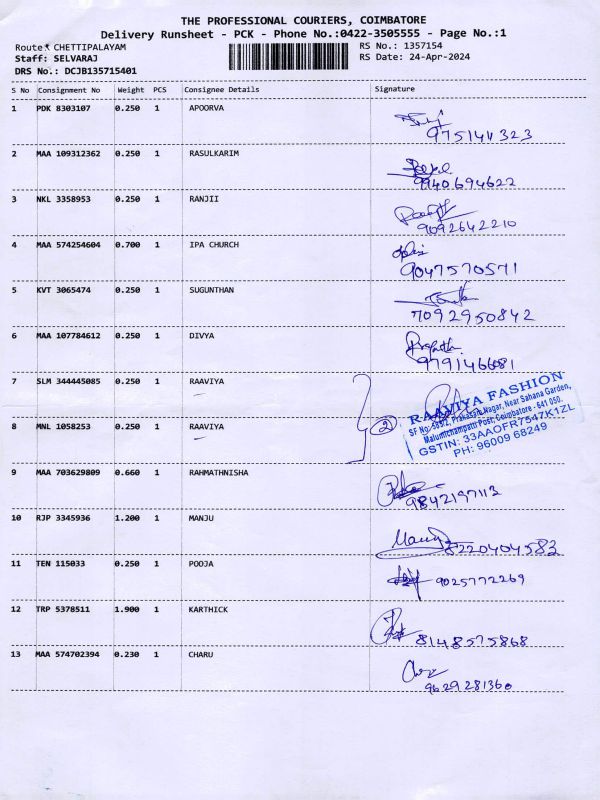 THE PROFESSIONAL COURIERS, COIMBATORE
Delivery Runsheet - PCK - Phone No.:0422-3505555 - Page No.:1
Route: CHETTIPALAYAM RS No.: 1357154
Staff: SELVARAJ RS Date: 24-Apr-2024
DRS No.: DCJB135715401
S No Consignment No Weight PCS Consignee Details Signature
1 PDK 8303107 0.250 1 APOORVA
2 MAA 109312362 0.250 1 RASULKARIM
9940694622
3 NKL 3358953 0.250 1 RANJII
9092642210
4 MAA 574254604 0.700 1 IPA CHURCH
9047570571
5 KVT 3065474 0.250 1 SUGUNTHAN
7092950842
6 MAA 107784612 0.250 1 DIVYA
9791466081
7 SLM 344445085 0.250 1 RAAVIYA
8 MNL 1058253 0.250 1 RAAVIYA
2
RAAVIYA FASHION
SF No: 585/2, Prakasam Nagar, Near Sahana Garden,
Malumichampatti Post, Coimbatore - 641 050.
GSTIN: 33AAOFR7547K1ZL
PH: 96009 68249
9 MAA 703629809 0.660 1 RAHMATHNISHA
9842197113
10 RJP 3345936 1.200 1 MANJU
8220404583
11 TEN 115033 0.250 1 POOJA
9025772269
12 TRP 5378511 1.900 1 KARTHICK
8148575868
13 MAA 574702394 0.230 1 CHARU
9629281360